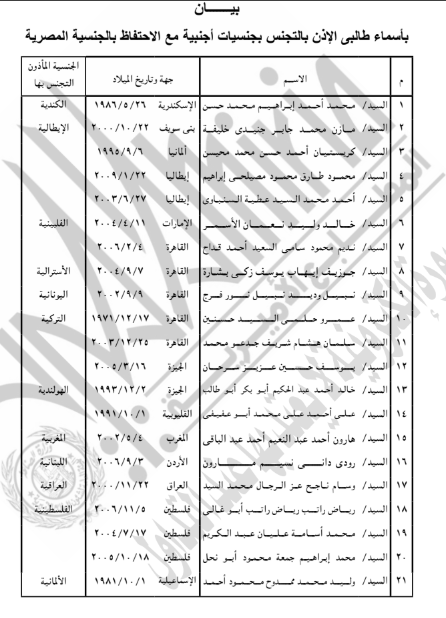 بيـــــان
بأسماء طالبى الإذن بالتجنس بجنسيات أجنبية مع الاحتفاظ بالجنسية المصرية
م الاســـم جهة وتاريخ الميلاد الجنسية المأذون التجنس بها
١ السيد/ محمد أحمد إبراهيم محمد حسن الإسكندرية ١٩٨٦/٥/٢٦ الكندية
٢ السيد/ مازن محمد جابر جنيدى خليفة بنى سويف ٢٠٠٠/١٠/٢٢ الإيطالية
٣ السيد/ كريستيان أحمد حسن محمد محيسن ألمانيا ١٩٩٥/٩/٦
٤ السيد/ محمود طارق محمود مصيلحى إبراهيم إيطاليا ٢٠٠٩/١/٢٢
٥ السيد/ أحمد محمد السيد عطية السنباوى إيطاليا ٢٠٠٣/٦/٢٧
٦ السيد/ خالد وليد نعمان الأسمر الإمارات ٢٠٠٤/٤/١١ الفلبينية
٧ السيد/ نديم محمود سامى السعيد أحمد قداح القاهرة ٢٠٠٦/٢/٤
٨ السيد/ جوزيف إيهاب يوسف زكى بشارة القاهرة ٢٠٠٤/٩/٧ الأسترالية
٩ السيد/ نبيل وديد نبيل نسور فرج القاهرة ٢٠٠٢/٩/٩ اليونانية
١٠ السيد/ عمرو حلمى السيد حسنين القاهرة ١٩٧١/١٢/١٧ التركية
١١ السيد/ سلمان هشام شريف جدعو محمد القاهرة ٢٠٠٣/١٢/٢٥
١٢ السيد/ يوسف حسين عزيز سرحان الجيزة ٢٠٠٥/٣/١٦
١٣ السيد/ خالد أحمد عبد الحكيم أبو بكر أبو طالب الجيزة ١٩٩٣/١٢/٢ الهولندية
١٤ السيد/ على أحمد على محمد أبو عفيفى القليوبية ١٩٩١/١٠/١
١٥ السيد/ هارون أحمد عبد النعيم أحمد عبد الباقى المغرب ٢٠٠٢/٥/٤ المغربية
١٦ السيد/ رودى دانى نسيم مارون الأردن ٢٠٠٦/٩/٣ اللبنانية
١٧ السيد/ وسام ناجح عز الرجال محمد السيد العراق ٢٠٠٠/١١/٢٢ العراقية
١٨ السيد/ رياض راتب رياض راتب أبو غالى فلسطين ٢٠٠٦/١١/٥ الفلسطينية
١٩ السيد/ محمد أسامة عليان عبد الكريم فلسطين ٢٠٠٤/٧/١٧
٢٠ السيد/ محمد إبراهيم جمعة محمود أبو نحل فلسطين ٢٠٠٥/١٠/١٨
٢١ السيد/ وليد محمد ممدوح محمود أحمد الإسماعيلية ١٩٨١/١٠/١ الألمانية